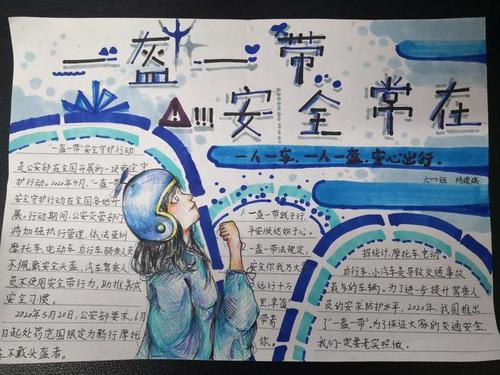 一盔一带
!!! 安全常在
一人一车,一人一盔,安心出行.
六四班 杨建瑞
"一盔一带"安全守护行动
是公安部在全国开展的一项安全守
护行动。2020年4月,"一盔一带"
安全守护行动在全国各地开
展,行动期间,公安交管部门
将加强执行管理,依法查纠
摩托车、电动车、自行车骑乘人员
不佩戴安全头盔,汽车驾乘人
员不使用安全带行为,助推养成
安全习惯。
2020年5月20日,公安部要求,6月
日起处罚范围限定为骑行摩托
车不戴头盔者。
一盔一带跳行行,
平安快达如于心。
一盔一带法规定,
安全你我为大
远行十万
里,幸福
带着
你。
据统计,摩托车、电动
自行车、小汽车是导致交通事故
最多的车辆。为了进一步提升驾乘人
员的安来防护水平,2020年,我国推出
了"一盔一带",为了保证大家的交通安全,
我们一定要老实照做。